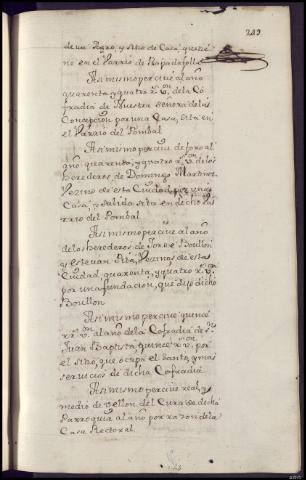 289
de un Agro, y sitio de Casa, questé
no en el varrio de Rapadafolla
Asimismo percive al año
quarenta y quatro rs. vn. de la Co
fradia de Nuestra señora de la
Concepcion por una Casa, sita en
el Varrio del Pombal
Asi mismo percive de foro al
año quarenta, y quatro rs. vn. de los
herederos de Domingo Martinez
Vezino de esta Ciudad, por una
Casa, y salido sita en dicho Va
rrio del Pombal
Asi mismo percive al año
de los herederos de Jorge Boullon
y estevan Piba, Vezinos de esta
Ciudad, quarenta, y quatro rs. vn.
por una fundacion, que dijo dicho
Boullon
Asi mismo percive quince
rs. vn. al año de la Cofradia de Sn.
Juan Baptista, quince rs. vn. por
el sitio, que ocupa el santo, y mas
servicios de dicha Cofradia
Asi mismo percive real, y
medio de vellon del Cura de dicha
Parroquia al año por razon de la
Casa Rectoral.